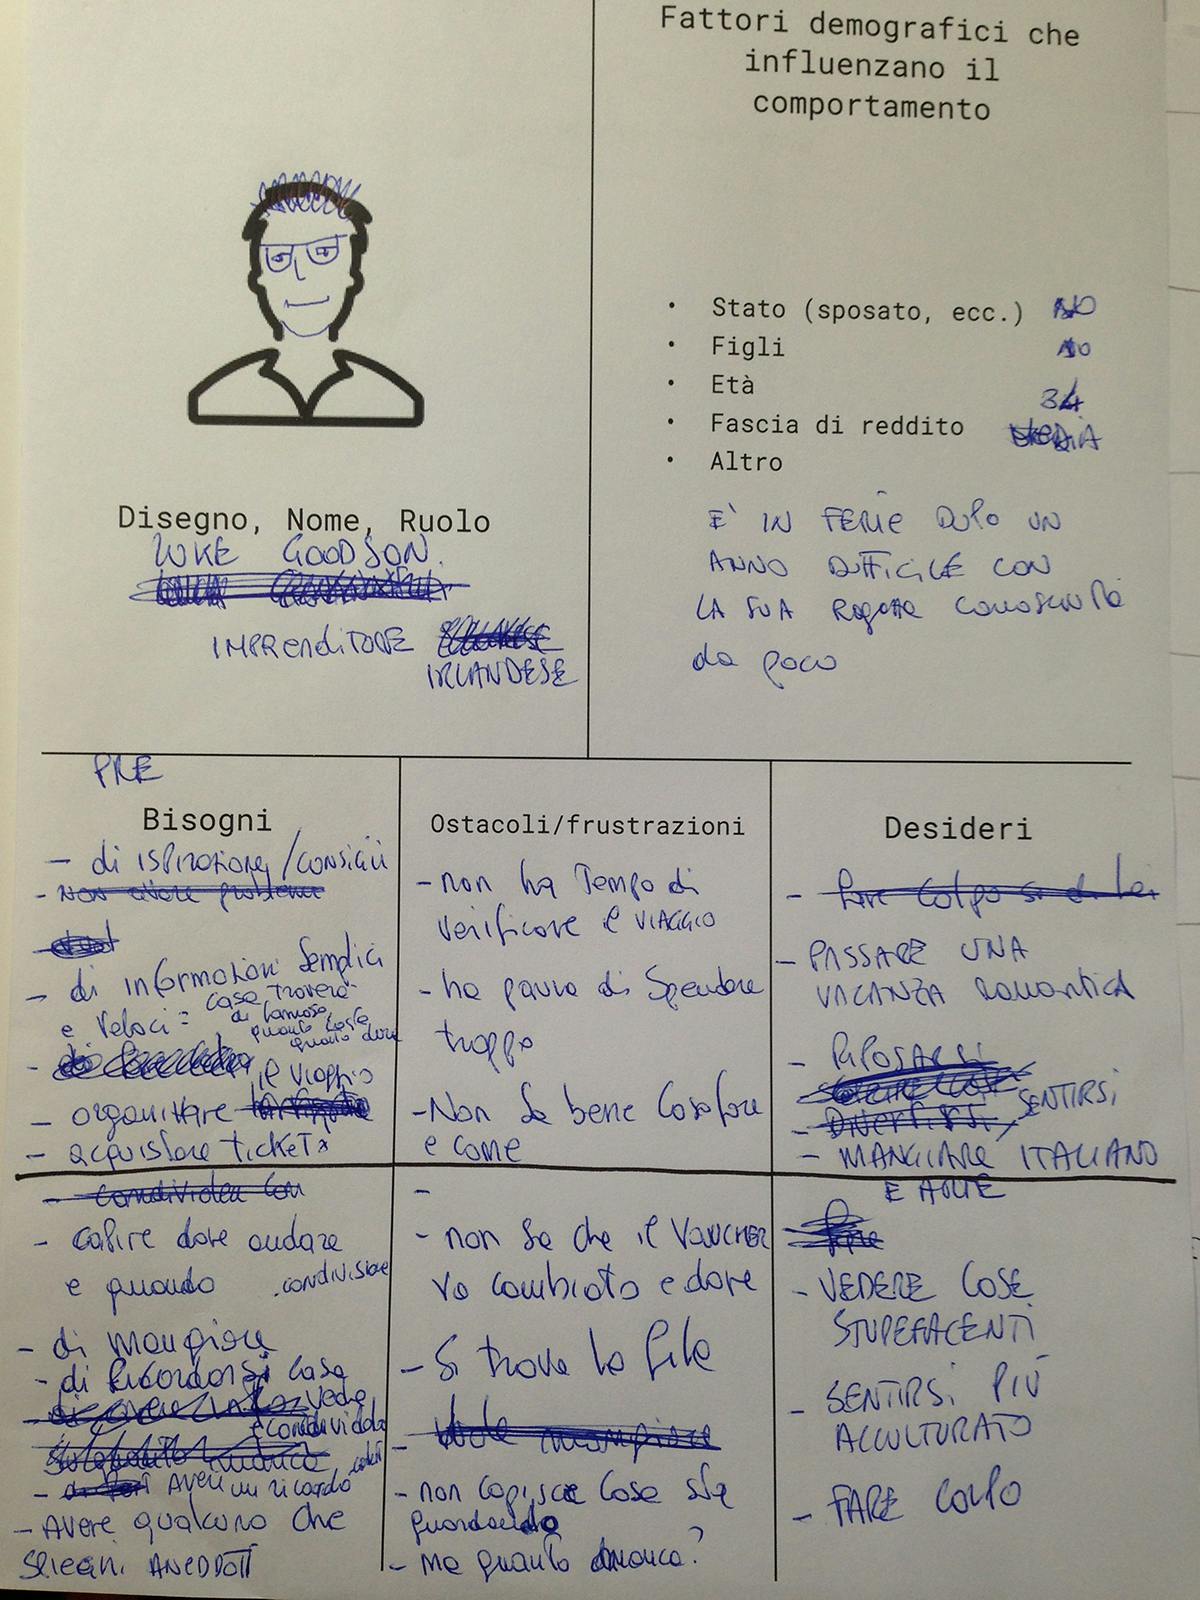 Fattori demografici che
influenzano il
comportamento
• Stato (sposato, ecc.) NO
• Figli NO
• Età 34
• Fascia di reddito MEDIA
• Altro
E' IN FERIE DOPO UN
ANNO DIFFICILE CON
LA SUA Ragazza conosciuta
da poco
Disegno, Nome, Ruolo
LUKE GOODSON.
IMPRENDITORE
IRLANDESE
PRE
Bisogni
- di ISPIRAZIONE/CONSIGLI
- Non avere problemi
- di informazioni Semplici
e Veloci = cosa troverà
di famoso
quanto costa
quanto dura
il viaggio
- organizzare
- acquistare tickets
- condividere con
- capire dove andare
e quando
condivisione
- di mangiare
- di Ricordarsi cosa
vede
e condividere
- AVERE un ricordo
- AVERE qualcuno che
SPIEGHI ANEDDOTI
Ostacoli/frustrazioni
- non ha Tempo di
verificare il VIAGGIO
- ha paura di Spendere
troppo
- Non Sa bene Cosa fare
e come
-
- non Sa che il VOUCHER
va cambiato e dove
- Si trova la fila
- non capisce Cosa sta
guardando
- ma quanto manca?
Desideri
- fare colpo su di lei
- PASSARE UNA
VACANZA Romantica
- RIPOSARSI
- Divertirsi
SENTIRSI
- MANGIARE ITALIANO
E
- VEDERE COSE
STUPEFACENTI
- SENTIRSI PIÙ
ACCULTURATO
- FARE COLPO